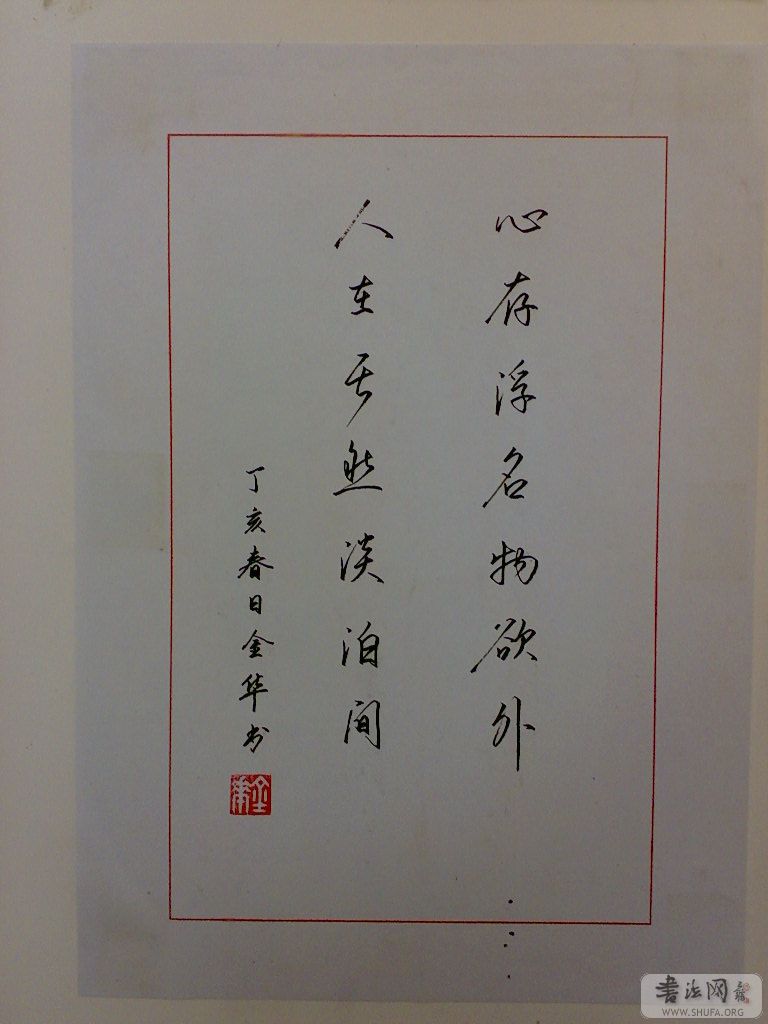 心存浮名物欲外
人在然淡泊间
丁亥春日金华书
金华
书法网
WWW.SHUFA.ORG